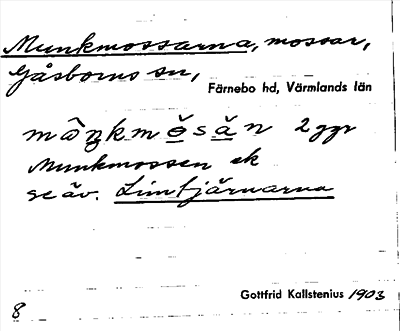 Munkmossarna, mossar,
Gåsborns sn,
Färnebo hd, Värmlands län
mo᷈ŋkmŏ̲să̲n 2 ggr
Munkmossen ek
se äv. Limtjärnarna
Gottfrid Kallstenius 1903
8